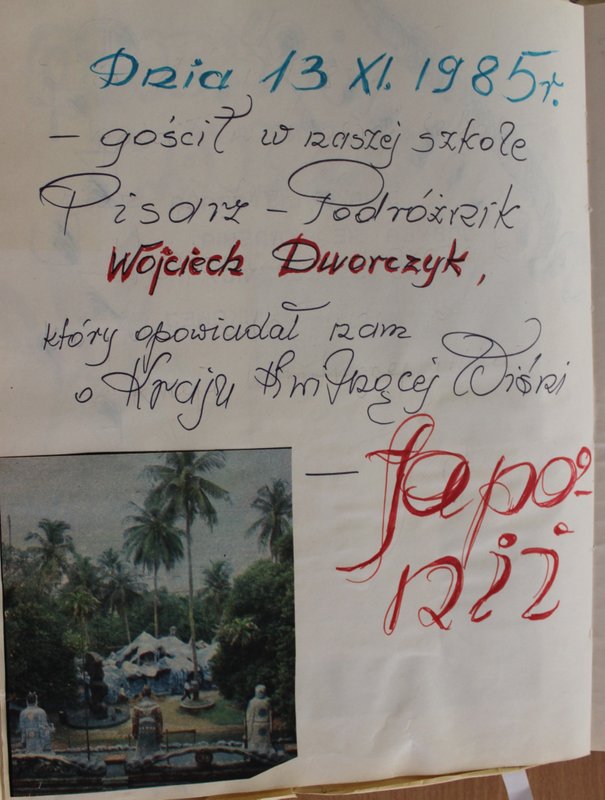 Dnia 13 XI. 1985r.
– gościł w naszej szkole
Pisarz – Podróżnik
Wojciech Dworczyk,
który opowiadał nam
o Kraju Kwitnącej Wiśni
– Japo-
nii